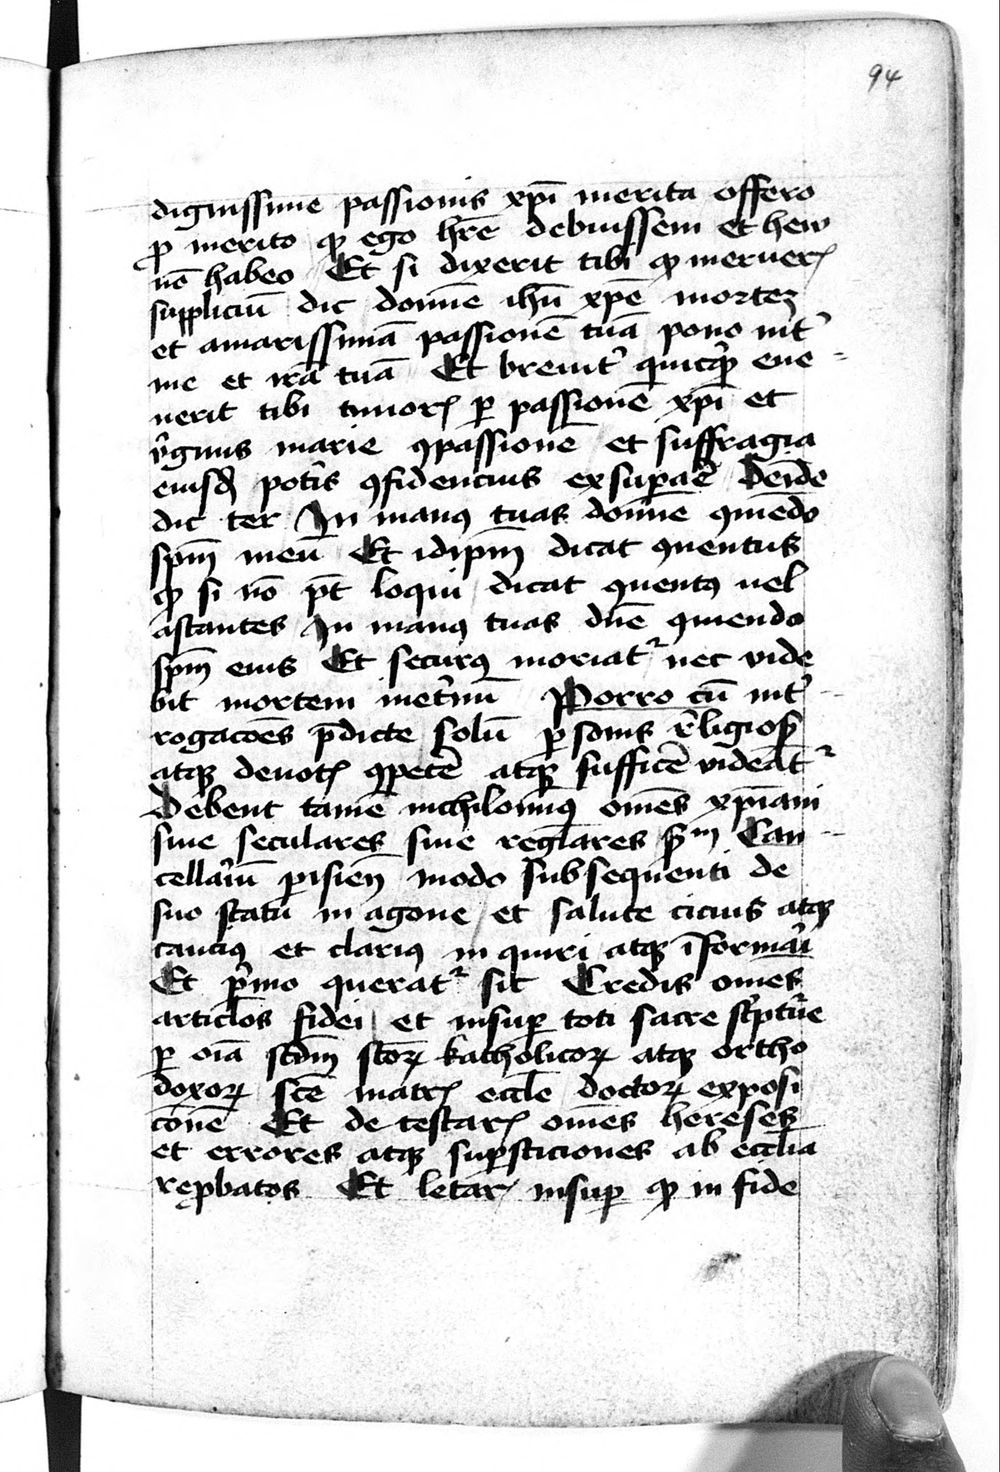 94
dignissime passionis xpi̅ merita offero
ꝓ merito qͥ ego hr̅e debuissem et hew
no̅ habeo Et si dixerit tibi ꝙ meruerꝭ
suppliciu̅ dic domi̅e ihu̅ xpe̅ morteꝫ
et amarissima̅ passione̅ tua̅ pono int͛
me et ira̅ tua̅ Et breuit͛ quicqͥd eue
nerit tibi timorꝭ ꝑ passione̅ xpi̅ et
v͛ginis marie ꝯpassione̅ et suffragia
eiusd̅ pot͛is ꝯfidencius exsupar̅e Dei̅de
dic ter In manꝰ tuas domi̅e ꝯme̅do
spm̅ meu̅ Et idipm̅ dicat ꝯuentus
ꝙ si no̅ pt̅ loqui dicat ꝯuentꝰ uel
astantes In manꝰ tuas dn̅e ꝯmendo
spm̅ eius Et securꝰ moriat᷑ nec vide
bit mortem inet͛nu̅ Porro cu̅ int͛
rogaco̅es p̅dicte solu̅ ꝑsonis r͛ligiosꝭ
atqꝫ deuotꝭ ꝯpete̅r atqꝫ suffice̅r videa̅t᷑
Debent tame̅ nichilominꝰ om̅es xp̅iani
siue seculares siue reg̅lares sm̅ Can
cellar͛iu̅ ꝑisien̅ modo subsequenti de
suo statu in agone et salute cicius atqꝫ
cauciꝰ et clariꝰ in quiri atqꝫ i̅forma̅ri
Et pͥmo querat᷑ sic Credis om̅es
articl̅os fidei et insuꝑ toti sacre sc̅ptu͛e
ꝑ oi̅a scd̅m sc̅oꝝ katholicoꝝ atqꝫ ortho
doxoꝝ sc̅e matrꝭ eccl̅e doctoꝝ exposi
co̅ne̅ Et de testarꝭ om̅es hereses
et errores atqꝫ suꝑsticiones ab eccl̅ia
reꝓbatos Et letarꝭ insuꝑ ꝙ in fide